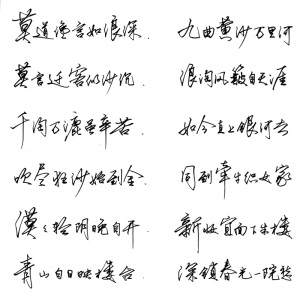 莫道谗言如浪深.
莫言迁客似沙沉.
千淘万漉虽辛苦.
吹尽狂沙始到金.
漠々轻阴晚自开
青山白日映楼台.
九曲黄沙万里河
浪淘风簸自天涯
如今直上银河去
同到牵牛织女家
新妆宜面下朱楼
深锁春光一院愁